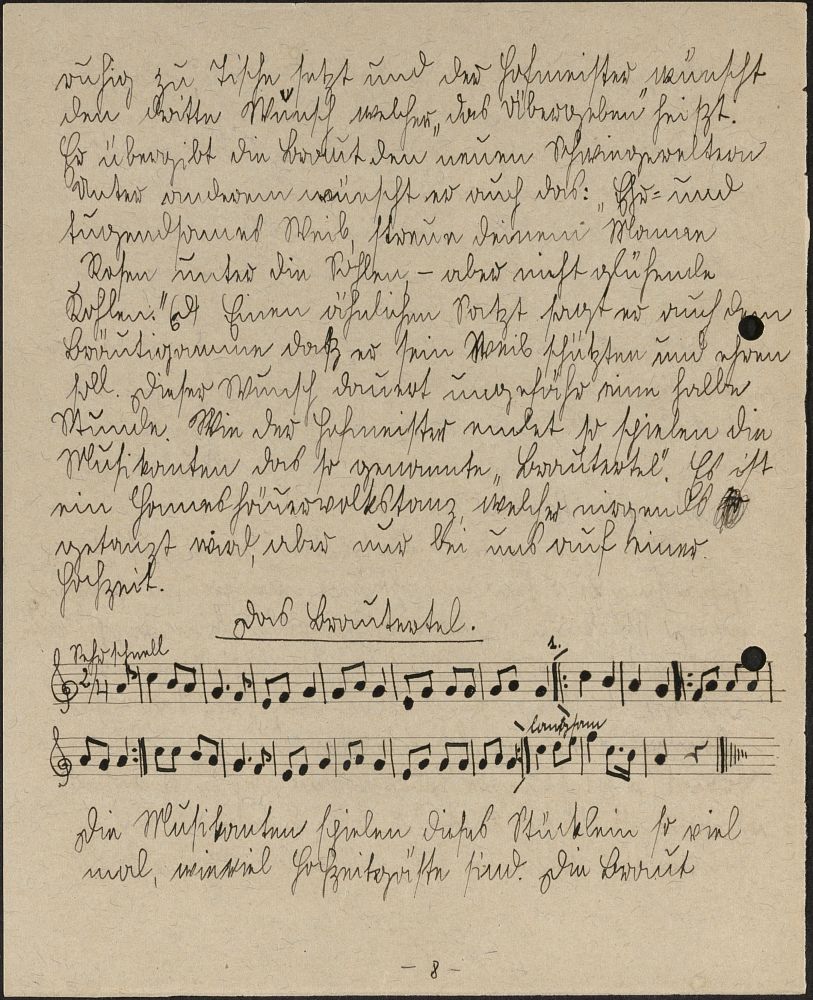 ruhig zu Tische setzt und der Hofmeister wünscht
den dritte Wunsch welcher „das Übergeben" heißt.
Er übergibt die Braut den neuen Schwiegereltern
Unter anderem wünscht er auch das: „Ehr= und
tugendsames Weib, streue deinem Manne
Rosen unter die Sohlen, – aber nicht glühende
Kohlen." Einen ähnlichen Satzt sagt er auch dem
Bräutigamme daß er sein Weib schützten und ehren
soll. Dieser Wunsch dauert ungefähr eine halbe
Stunde. Wie der Hofmeister endet so spielen die
Musikanten das so genannte „Brautertel". Es ist
ein volkstanz, welcher nirgends
getanzt wird, aber nur bei uns auf einer
Hochzeit.
Das Brautertel.
Sehr schnell
1.
2/4
langsam
Die Musikanten spielen dieses Stücklein so viel
mal, wieviel Hochzeitsgäste sind. Die Braut
– 8 –